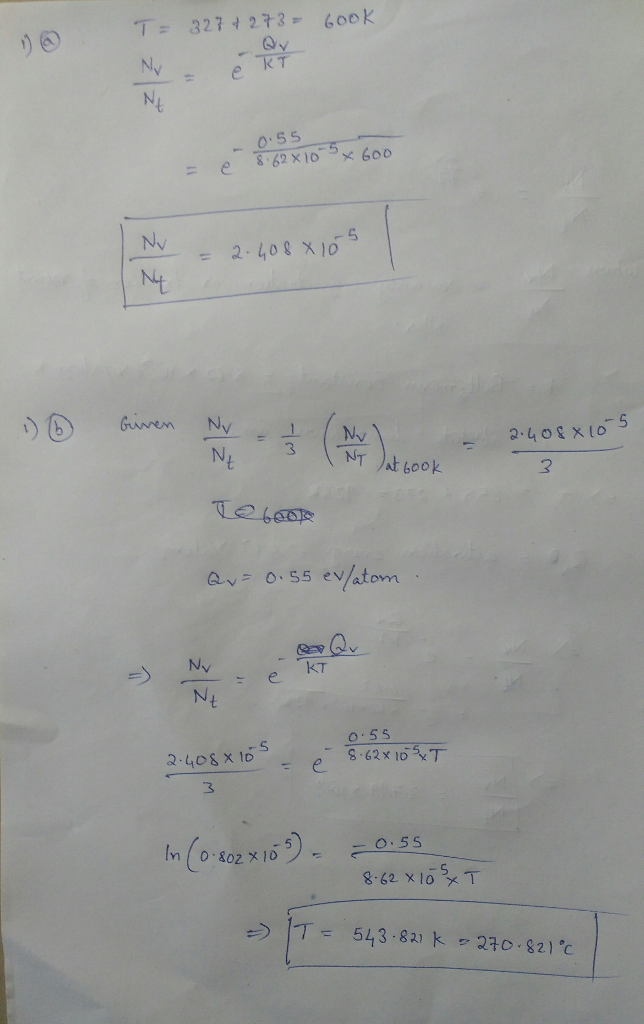 1) ⓐ T = 327 + 273 = 600K
Nv/Nt = e^(-Qv/KT)
= e^(-0.55/8.62×10^-5 × 600)
Nv/Nt = 2.408 × 10^-5
1) ⓑ Given Nv/Nt = 1/3 (Nv/NT)at 600K = 2.408×10^-5/3
Qv = 0.55 ev/atom.
⇒ Nv/Nt = e^(-Qv/KT)
2.408×10^-5/3 = e^(-0.55/8.62×10^-5×T)
ln(0.802×10^-5) = -0.55/8.62×10^-5×T
⇒ T = 543.821 K = 270.821°C